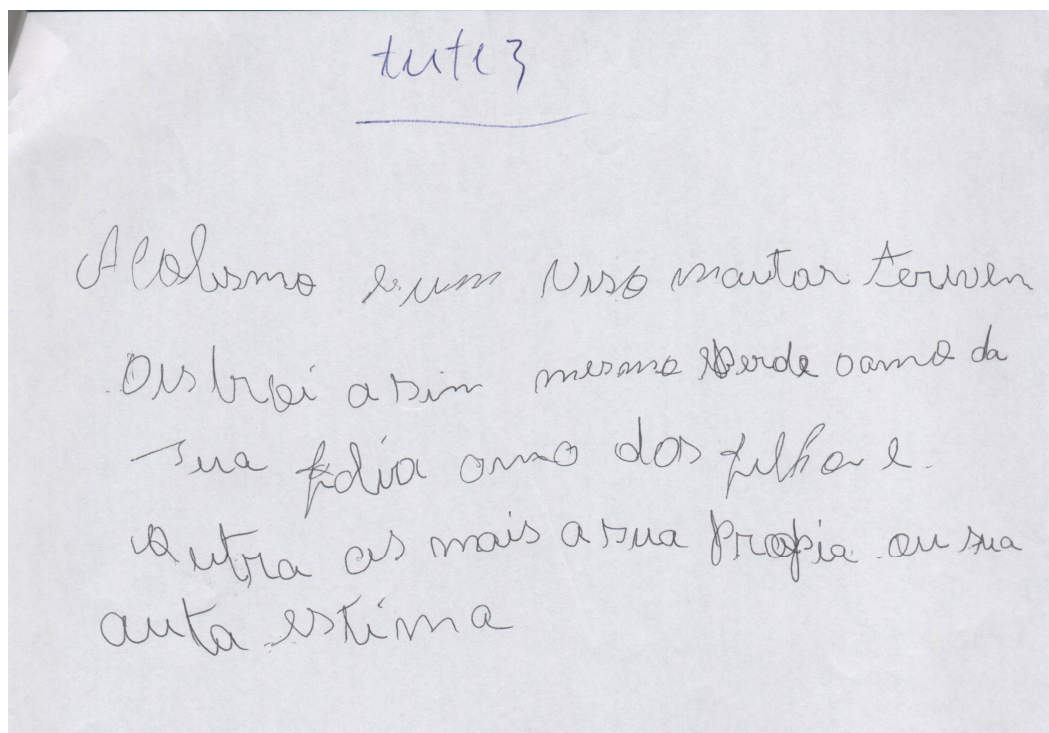 tute3
Alcolismo e um viso mautar terriven
Distroi a sim mesmo perde o amo da
sua folia amo dos filho e
autra as mais a sua propia ou sua
auta estima